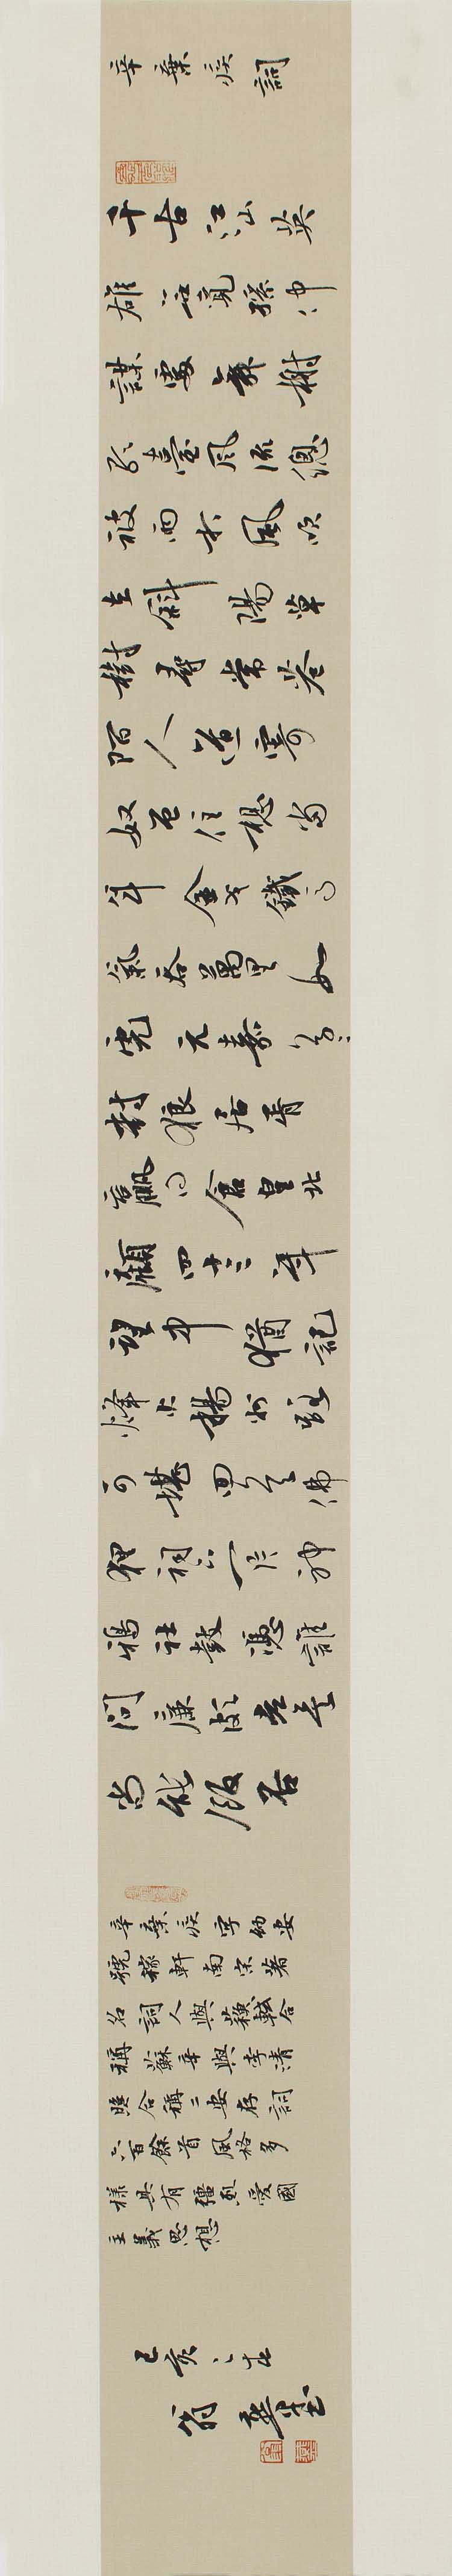 辛棄疾詞
千古江山英
雄無覓孫仲
謀處舞榭
歌臺風流總
被雨打風吹
去斜陽草
樹尋常巷
陌人道寄
奴曾住想當
年金戈鐵馬
氣吞萬里如
虎元嘉草草
封狼居胥
贏得倉皇北
顧四十三年
望中猶記
烽火揚州路
可堪回首佛
狸祠下一片神
鴉社鼓憑誰
問廉頗老矣
尚能飯否
辛棄疾字幼安
號稼軒南宋著
名詞人與蘇軾合
稱蘇辛與李清
照合稱二安存詞
六百餘首風格多
樣具有彊烈愛國
主義思想
己亥之春
翁